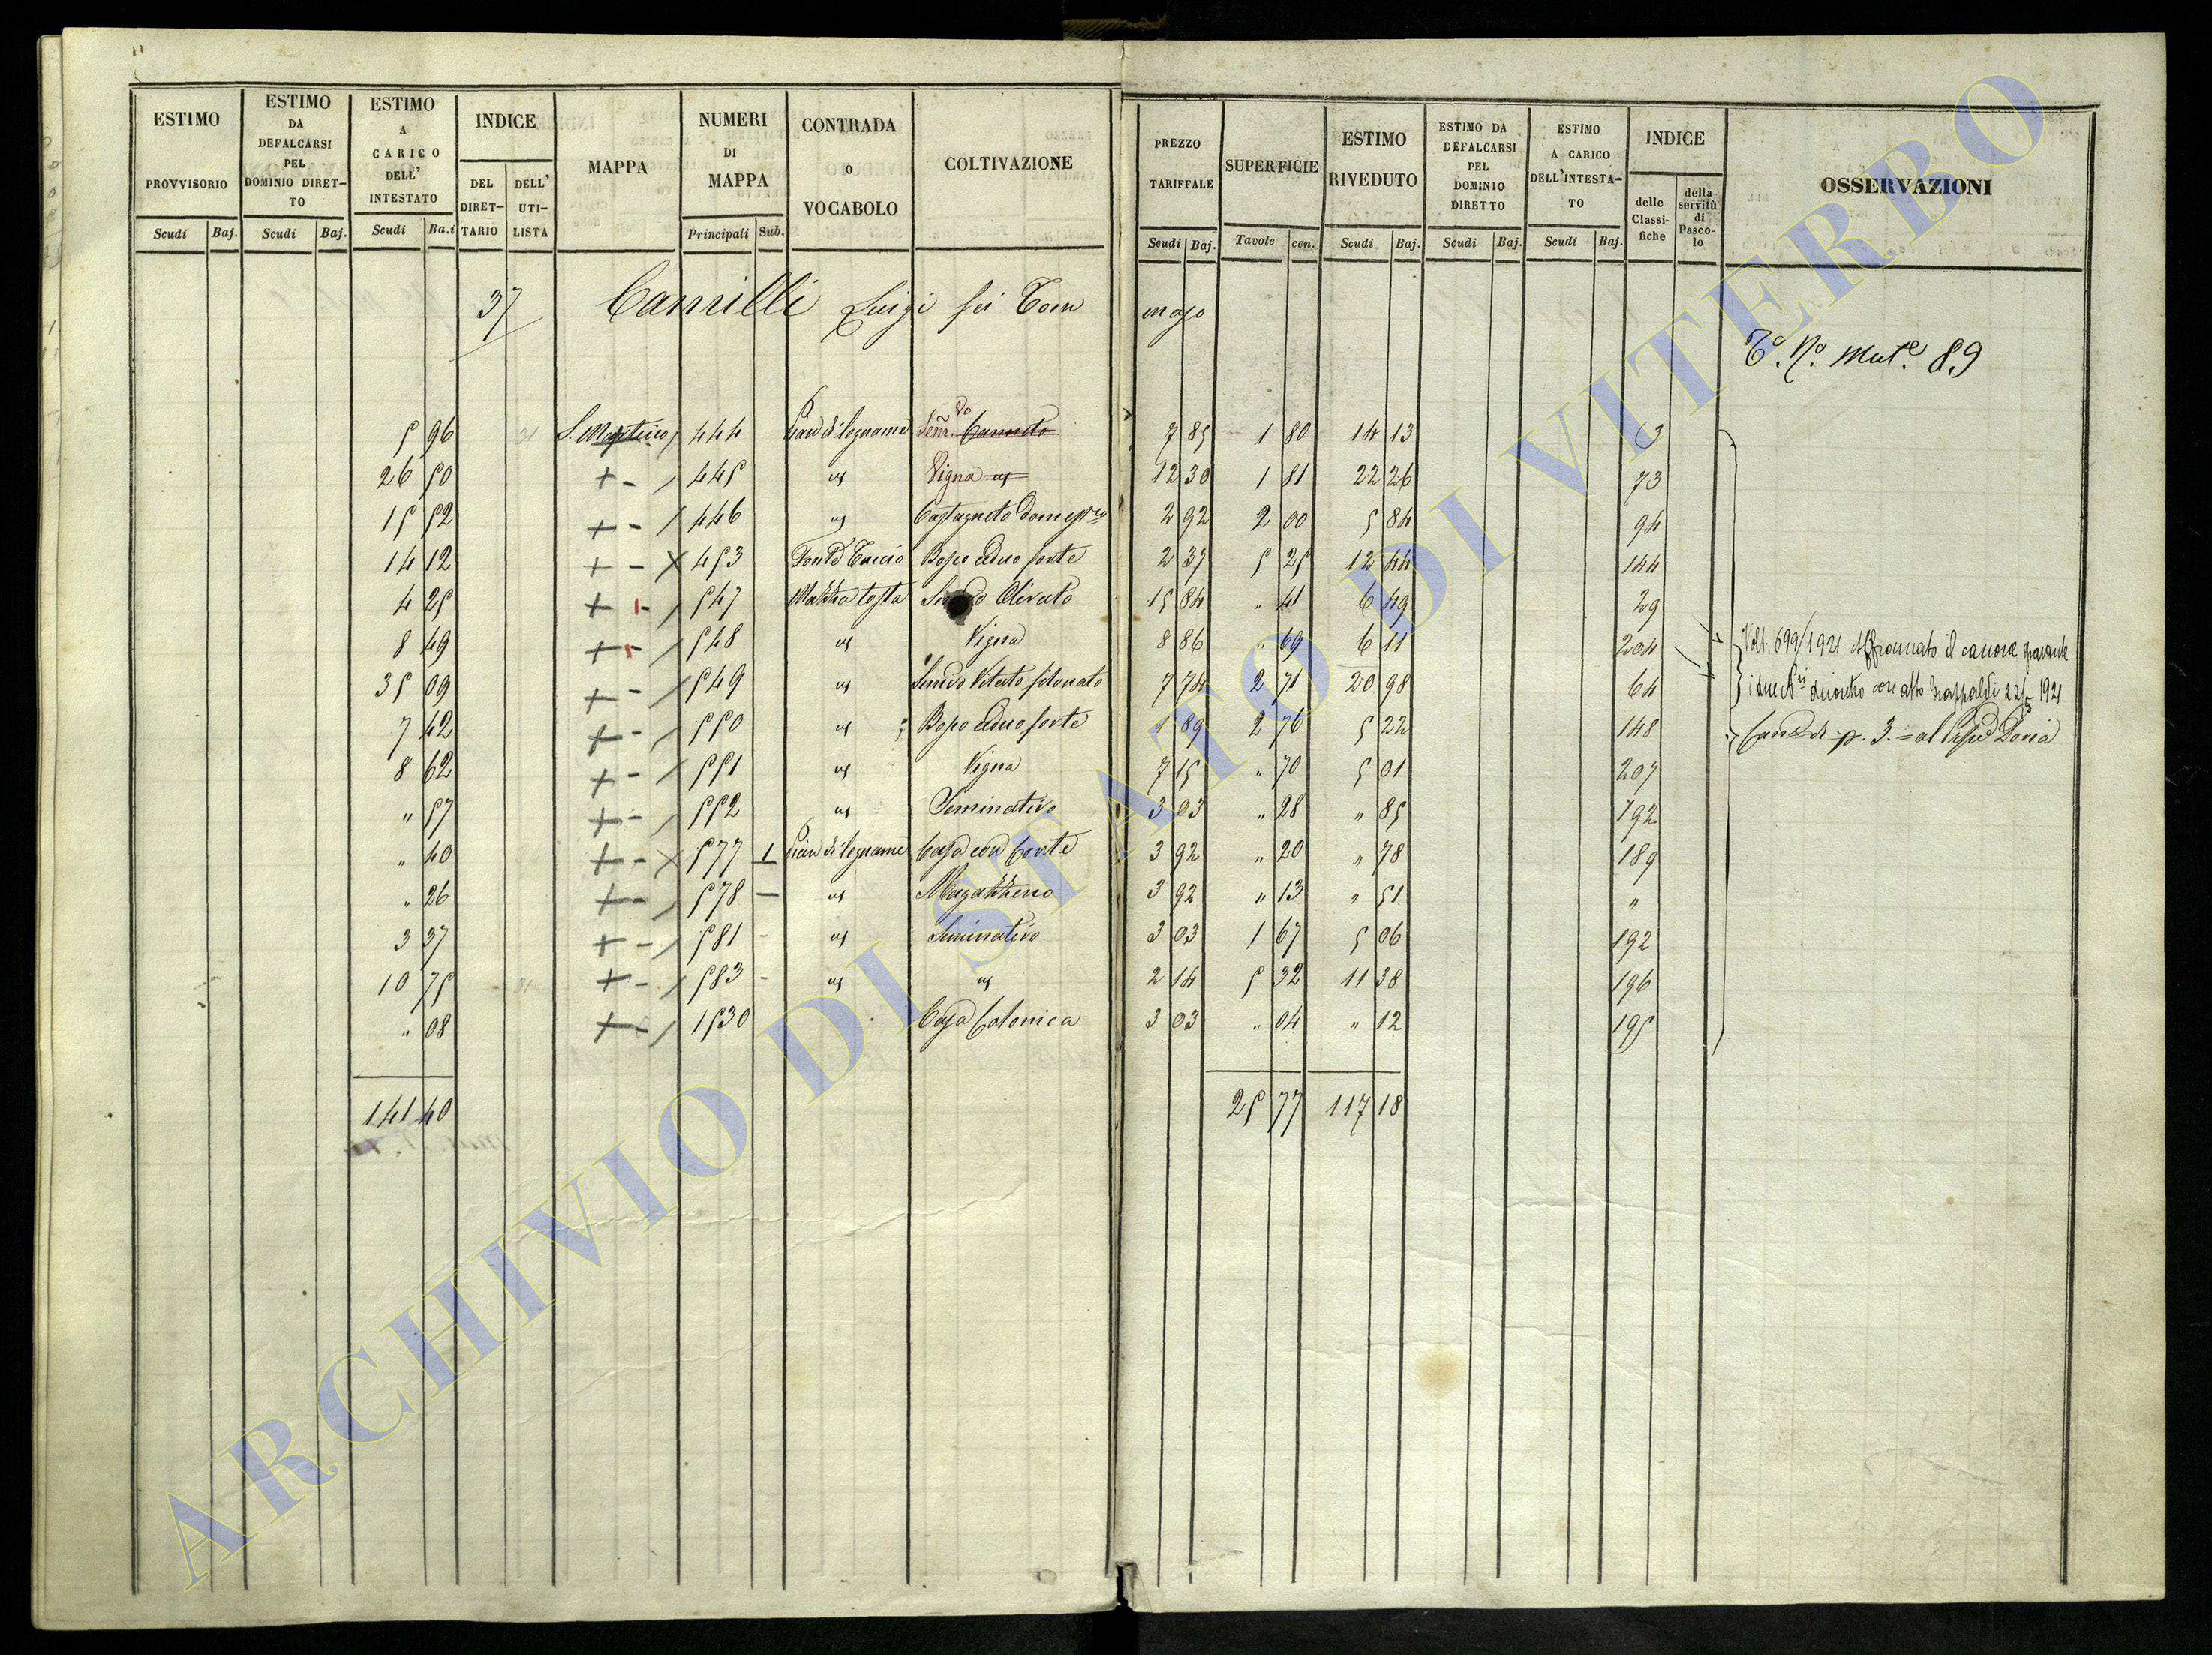 ESTIMO PROVVISORIO Scudi Baj.
ESTIMO DA DEFALCARSI PEL DOMINIO DIRET-TO Scudi Baj.
ESTIMO A CARICO DELL' INTESTATO Scudi Ba.i
INDICE DEL DIRET-TARIO DELL' UTI-LISTA
MAPPA
NUMERI DI MAPPA Principali Sub.
CONTRADA O VOCABOLO
COLTIVAZIONE
PREZZO TARIFFALE Scudi Baj.
SUPERFICIE Tavole cen.
ESTIMO RIVEDUTO Scudi Baj.
ESTIMO DA DEFALCARSI PEL DOMINIO DIRETTO Scudi Baj.
ESTIMO A CARICO DELL'INTESTA-TO Scudi Baj.
INDICE delle Classi-fiche della servitù di Pasco-lo
OSSERVAZIONI
37 Camilli Luigi fu Tom maso
Mut.e 89
5 96 31 S. Martino 444 Pian di legname Sem. Canneto 7 85 1 80 14 13
26 50 + - 445 id Vigna id 12 30 1 81 22 26 73
15 52 + - 446 id Castagneto Domest.co 2 92 2 00 5 84 94
14 12 + - X 453 Bosco ceduo forte 2 37 5 25 12 44 144
4 25 + - 547 Mazza testa Olivato 15 84 " 41 6 49 29
8 49 + - 548 id Vigna 8 86 " 69 6 11 204
Volt. 699/1921 Affrancato il canone gravante
35 09 + - 549 id Semvo Vitato 7 74 2 71 20 98 64
i due N.ri dicontro con atto 1921
7 42 + - 550 id Bosco ceduo forte 1 89 2 76 5 22 148
di 3. = al Doria
8 62 + - 551 id Vigna 7 15 " 70 5 01 207
" 57 + - 552 id Seminativo 3 03 " 28 " 85 192
" 40 + - X 577 1 Pian di legname Casa con Corte 3 92 " 20 " 78 189
" 26 + - 578 — id Magazzeno 3 92 " 13 " 51 "
3 37 + - 581 - id Seminativo 3 03 1 67 5 06 192
10 75 31 + - 583 - id id 2 14 5 32 11 38 196
" 08 + - 1530 Casa Colonica 3 03 " 04 " 12 195
141 40 25 77 117 18
ARCHIVIO DI STATO DI VITERBO